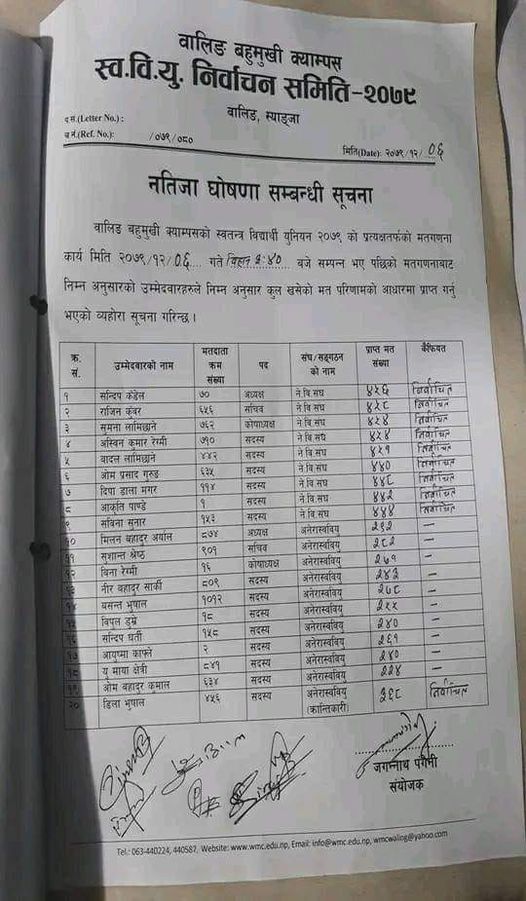 वालिङ बहुमुखी क्याम्पस
स्व.वि.यु. निर्वाचन समिति-२०७९
वालिङ, स्याङ्जा
प.सं.(Letter No.) :
च.नं.(Ref. No.): /०७९/०८०
मिति(Date): २०७९/१२/०६
नतिजा घोषणा सम्बन्धी सूचना
वालिङ बहुमुखी क्याम्पसको स्वतन्त्र विद्यार्थी युनियन २०७९ को प्रत्यक्षतर्फको मतगणना
कार्य मिति २०७९/१२/०६ गते बिहान ९:४० बजे सम्पन्न भए पछिको मतगणनाबाट
निम्न अनुसारको उम्मेदवारहरुले निम्न अनुसार कुल खसेको मत परिणामको आधारमा प्राप्त गर्नु
भएको व्यहोरा सूचना गरिन्छ ।
क्र.सं. उम्मेदवारको नाम मतदाता क्रम संख्या पद संघ/सङ्गठन को नाम प्राप्त मत संख्या कैफियत
१ सन्दिप कँडेल ७० अध्यक्ष ने.वि.संघ ४५६ निर्वाचित
२ राजिन कुंवर ६५६ सचिव ने.वि.संघ ४२८ निर्वाचित
३ सुमना लामिछाने ७६२ कोषाध्यक्ष ने.वि.संघ ४२४ निर्वाचित
४ अस्विन कुमार रेग्मी ७१० सदस्य ने.वि.संघ ४२४ निर्वाचित
५ वादल लामिछाने ४४२ सदस्य ने.वि.संघ ४५१ निर्वाचित
६ ओम प्रसाद गुरुङ ६३५ सदस्य ने.वि.संघ ४४० निर्वाचित
७ दिपा डाला मगर ११४ सदस्य ने.वि.संघ ४४८ निर्वाचित
८ आकृति पाण्डे १ सदस्य ने.वि.संघ ४४२ निर्वाचित
९ सविना सुनार १५३ सदस्य ने.वि.संघ ४४४ निर्वाचित
१० मिलन बहादुर अर्याल ८७४ अध्यक्ष अनेरास्ववियु २९२ –
११ सुशान्त श्रेष्ठ ९०१ सचिव अनेरास्ववियु २८२ –
१२ बिना रेग्मी १६ कोषाध्यक्ष अनेरास्ववियु २७१ –
१३ नीर बहादुर सार्की ८०९ सदस्य अनेरास्ववियु २४३ –
१४ बसन्त भुषाल १०१२ सदस्य अनेरास्ववियु २६८ –
१५ विपुल डुम्रे १८ सदस्य अनेरास्ववियु २५५ –
१६ सन्दिप घर्ती १५८ सदस्य अनेरास्ववियु २४० –
१७ आयुष्मा काफ्ले २ सदस्य अनेरास्ववियु २६१ –
१८ यु माया क्षेत्री ८४१ सदस्य अनेरास्ववियु २४० –
१९ ओम बहादुर कुमाल ६३४ सदस्य अनेरास्ववियु २२४ –
२० डिला भुषाल ४५६ सदस्य अनेरास्ववियु (क्रान्तिकारी) निर्वाचित
जगन्नाथ पंगेनी
संयोजक
Tel.: 063-440224, 440587, Website: www.wmc.edu.np, Email: info@wmc.edu.np, wmcwaling@yahoo.com